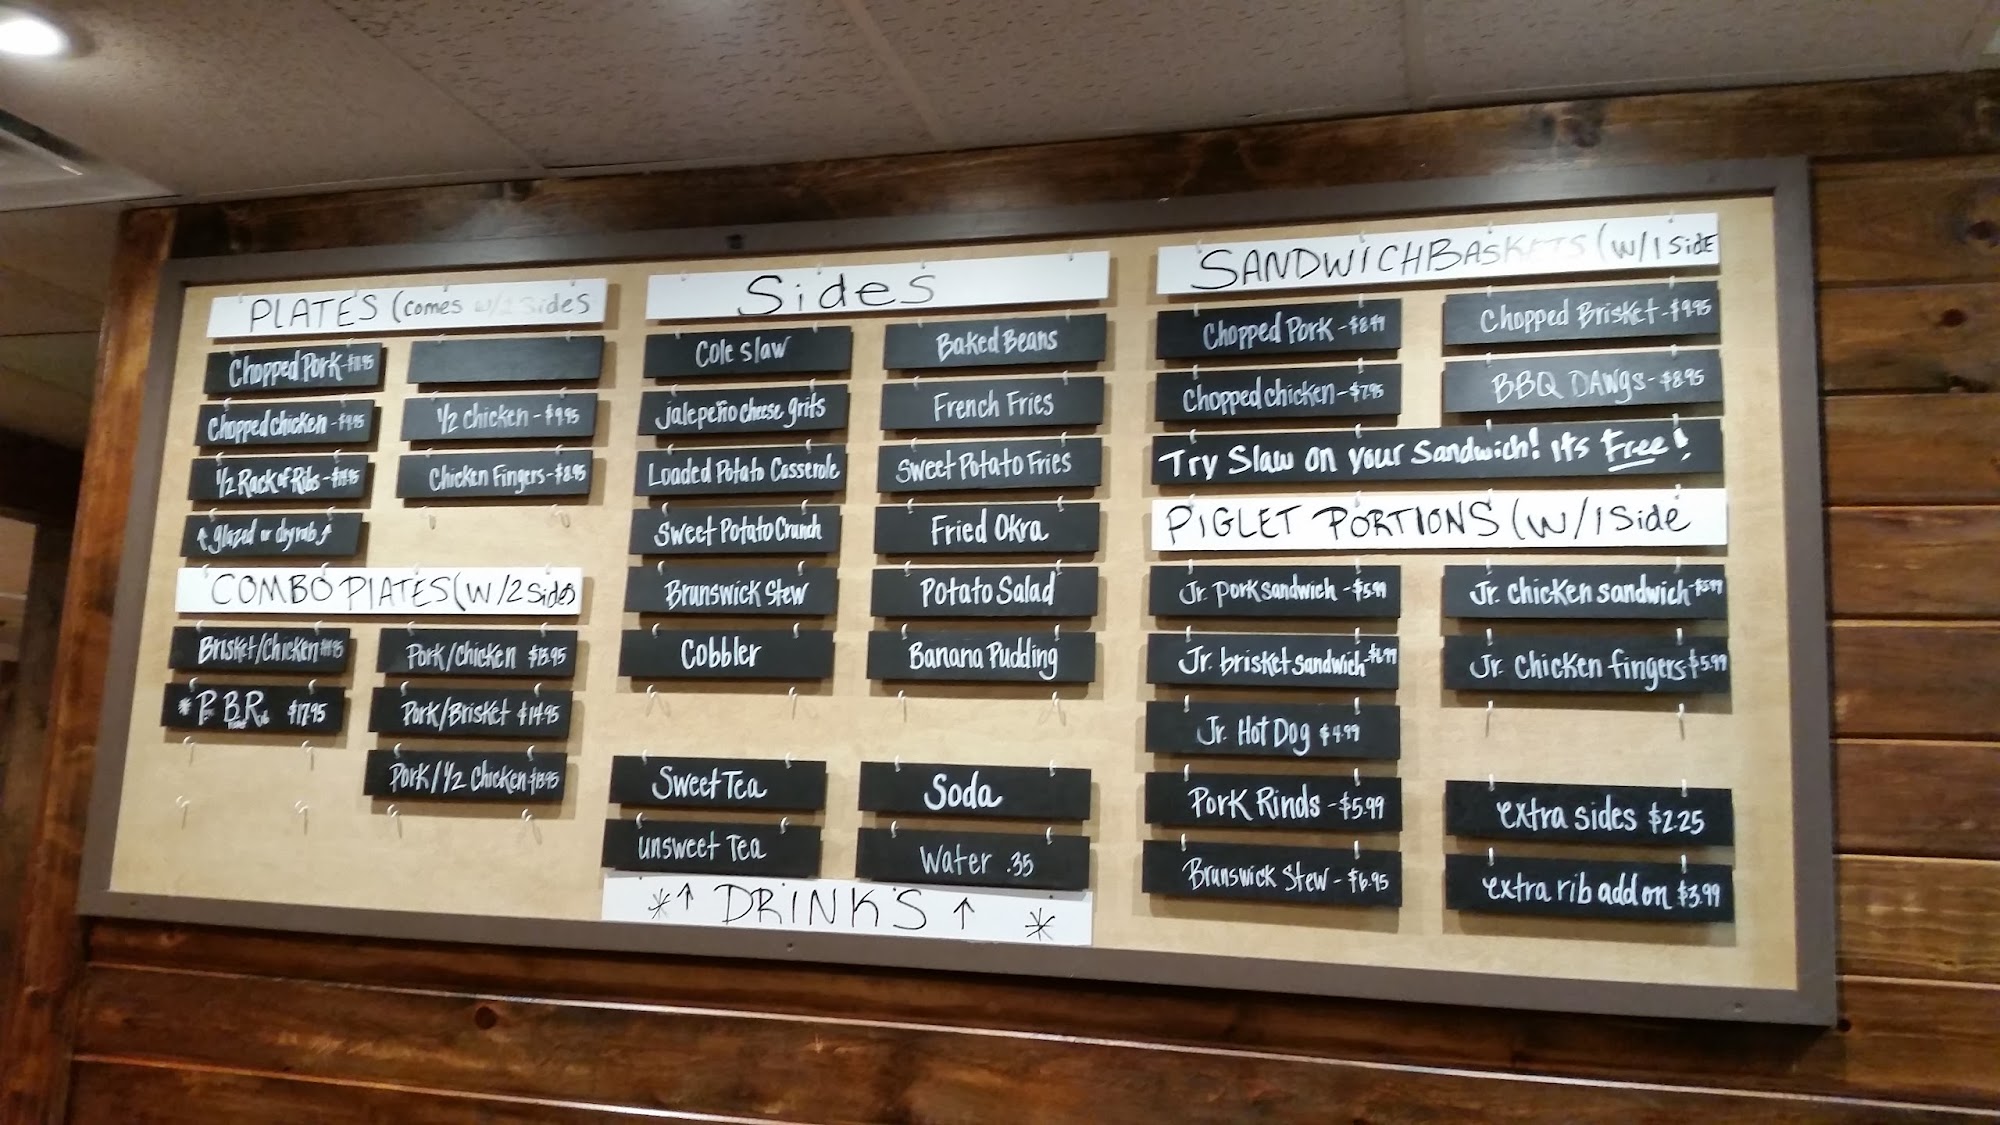 PLATES (comes w/2 sides
Chopped Pork - $11.95
Chopped chicken -
1/2 Rack of Ribs -
↑ glazed or dry rub ↑
1/2 chicken - $9.95
Chicken Fingers - $8.95
COMBO PLATES (w/2 sides
Brisket/Chicken
* P. B.R. $17.95
Pork/Chicken $13.95
Pork/Brisket $14.95
Pork/1/2 Chicken $13.95
Sides
Cole slaw
jalepeño cheese grits
Loaded Potato Casserole
Sweet Potato Crunch
Brunswick Stew
Cobbler
Baked Beans
French Fries
Sweet Potato Fries
Fried Okra
Potato Salad
Banana Pudding
Sweet Tea
unsweet Tea
Soda
Water .35
*↑ DRINKS ↑ *
SANDWICH BASKETS (w/1 side
Chopped Pork - $8.49
Chopped chicken - $7.95
Chopped Brisket - $9.95
BBQ DAWGS - $8.95
Try Slaw on your Sandwich! It's Free!
PIGLET PORTIONS (w/1 Side
Jr. pork sandwich - $5.99
Jr. brisket sandwich - $6.99
Jr. Hot Dog $4.99
Pork Rinds - $5.99
Brunswick Stew - $6.95
Jr. chicken sandwich - $5.99
Jr. chicken fingers - $5.99
extra sides $2.25
extra rib add on $3.99